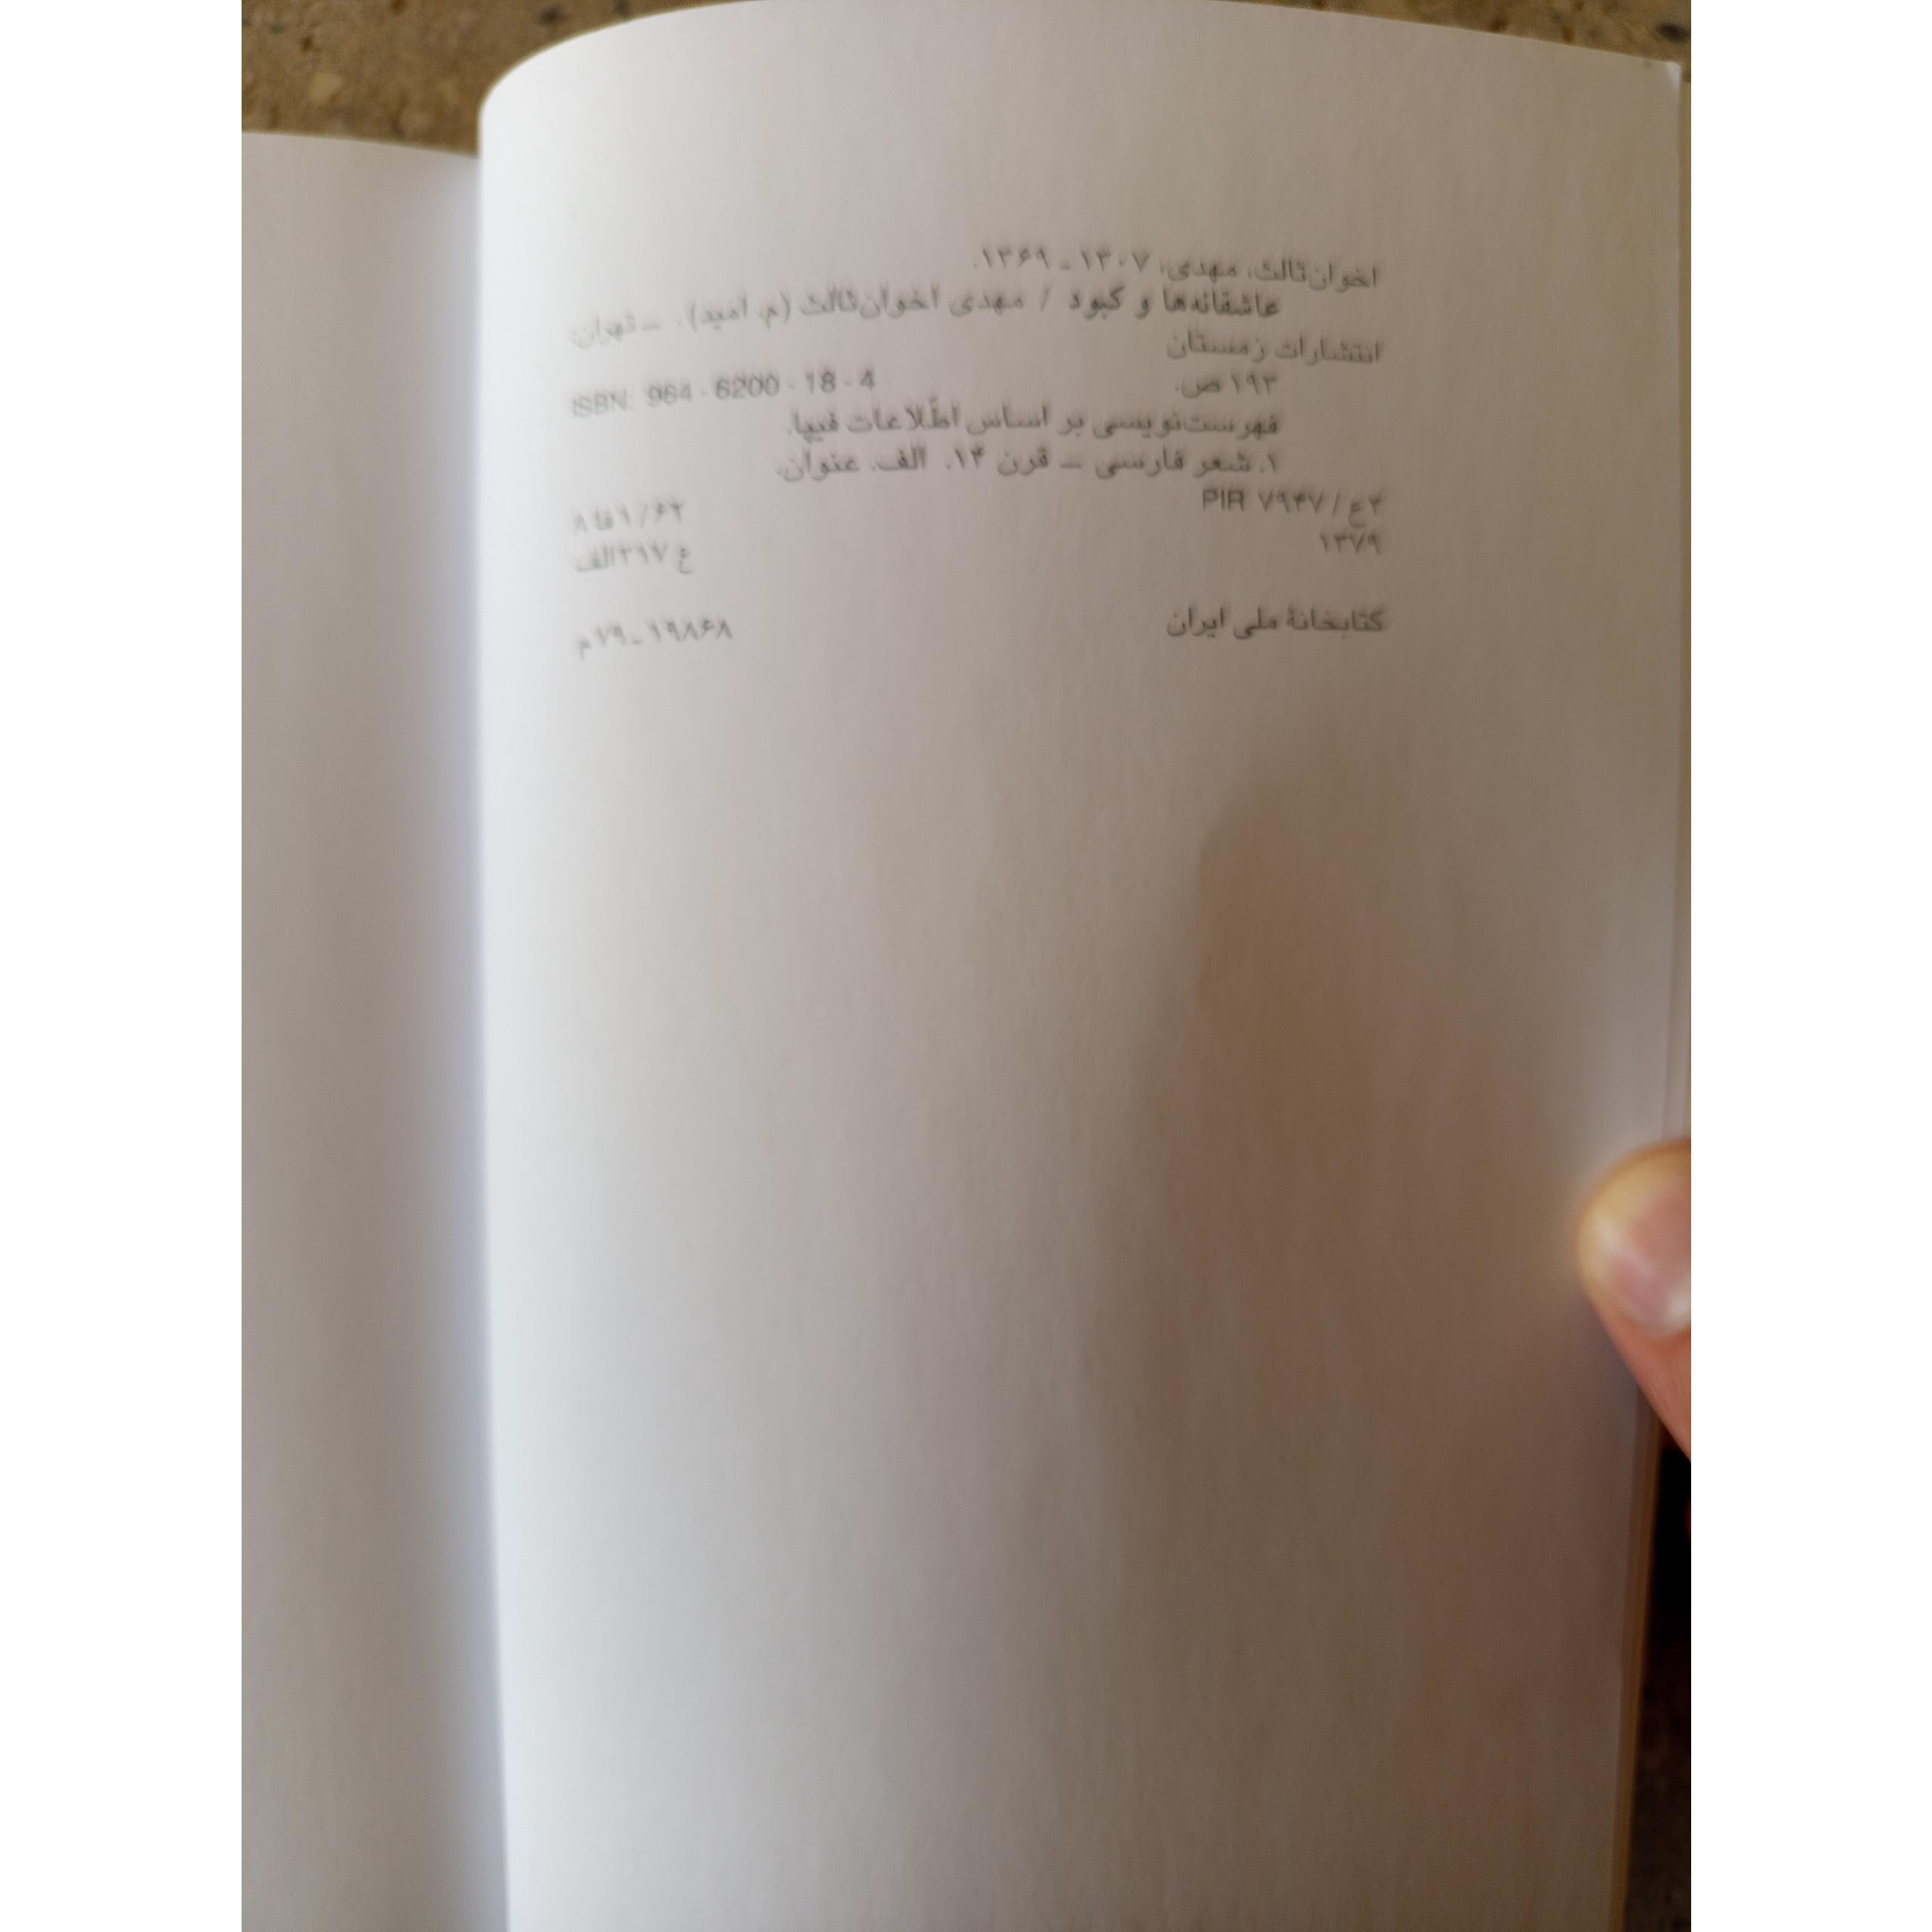 اخوان‌ثالث، مهدی، ۱۳۰۷ ـ ۱۳۶۹.
عاشقانه‌ها و کبود / مهدی اخوان‌ثالث (م. امید). ـ تهران:
انتشارات زمستان
۱۹۳ ص. ISBN: 964 - 6200 - 18 - 4
فهرست‌نویسی بر اساس اطّلاعات فیپا.
۱. شعر فارسی ـ قرن ۱۴. الف. عنوان.
PIR ۷۹۴۷ / ۴ع ۸فا۱/۶۲
۱۳۷۹ ع۳۱۷الف
کتابخانهٔ ملی ایران ۱۹۸۶۸ ـ ۷۹م